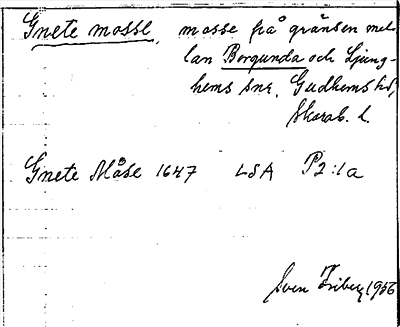 Gnete mosse, mosse på gränsen mel-
lan Borgunda och Ljung-
hems snr, Gudhems hd,
Skarab. l.
Gnete Måse 1647 LSA P2:1a
Sven Friberg 1956